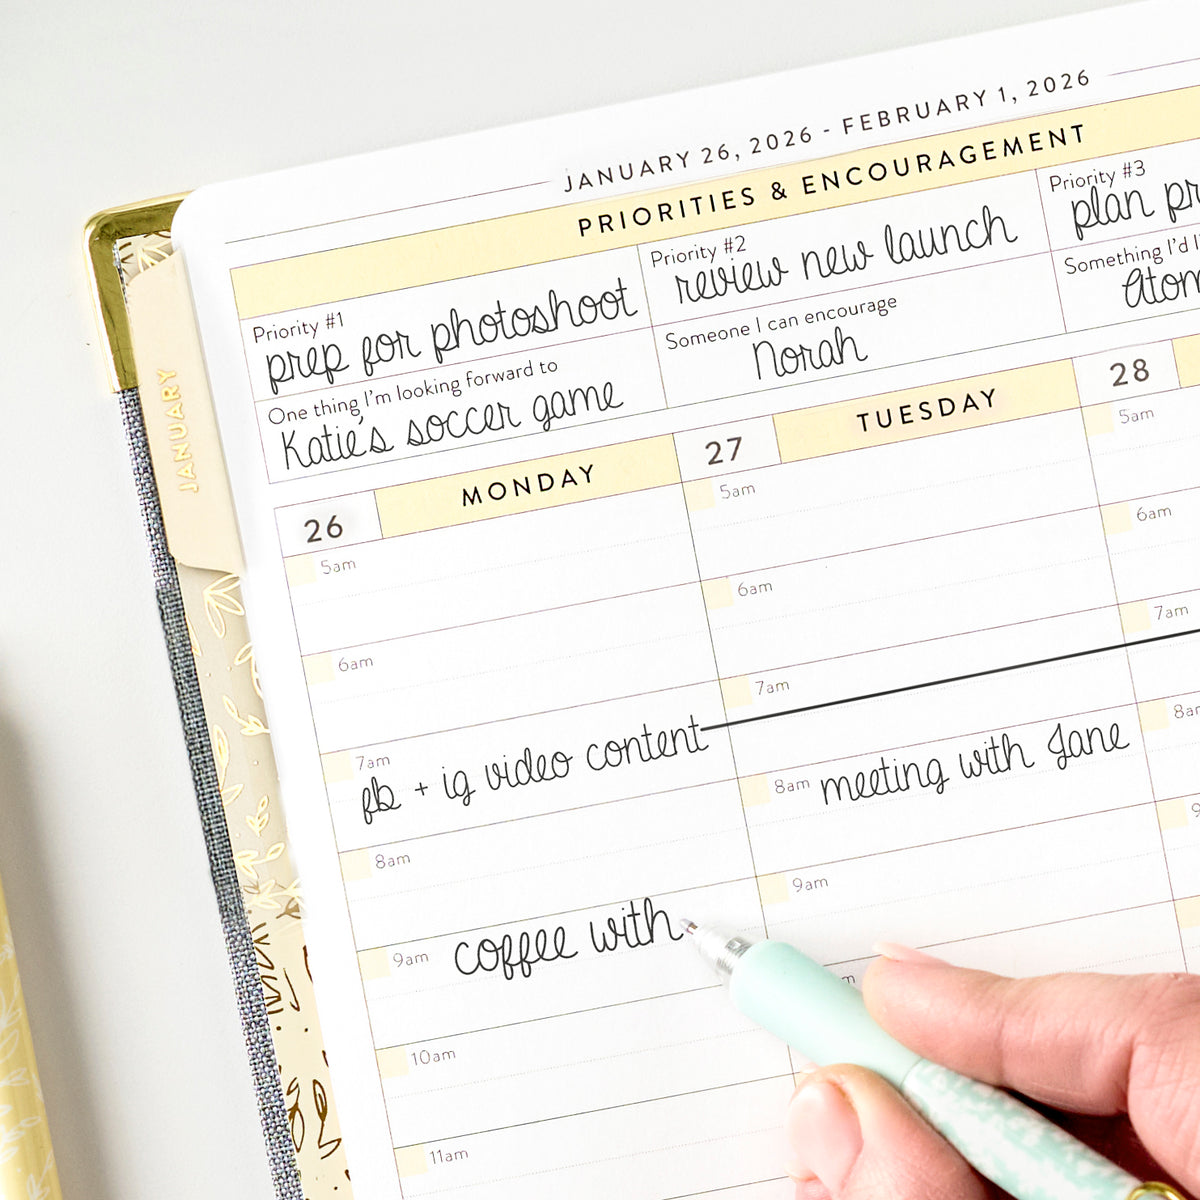 JANUARY 26, 2026 - FEBRUARY 1, 2026
PRIORITIES & ENCOURAGEMENT
Priority #1
prep for photoshoot
Priority #2
review new launch
Priority #3
plan
One thing I'm looking forward to
Katie's soccer game
Someone I can encourage
Norah
Something I'd
JANUARY
26 MONDAY
5am
6am
7am
fb + ig video content
8am
9am coffee with
10am
11am
27 TUESDAY
5am
6am
7am
8am meeting with Jane
9am
28
5am
6am
7am